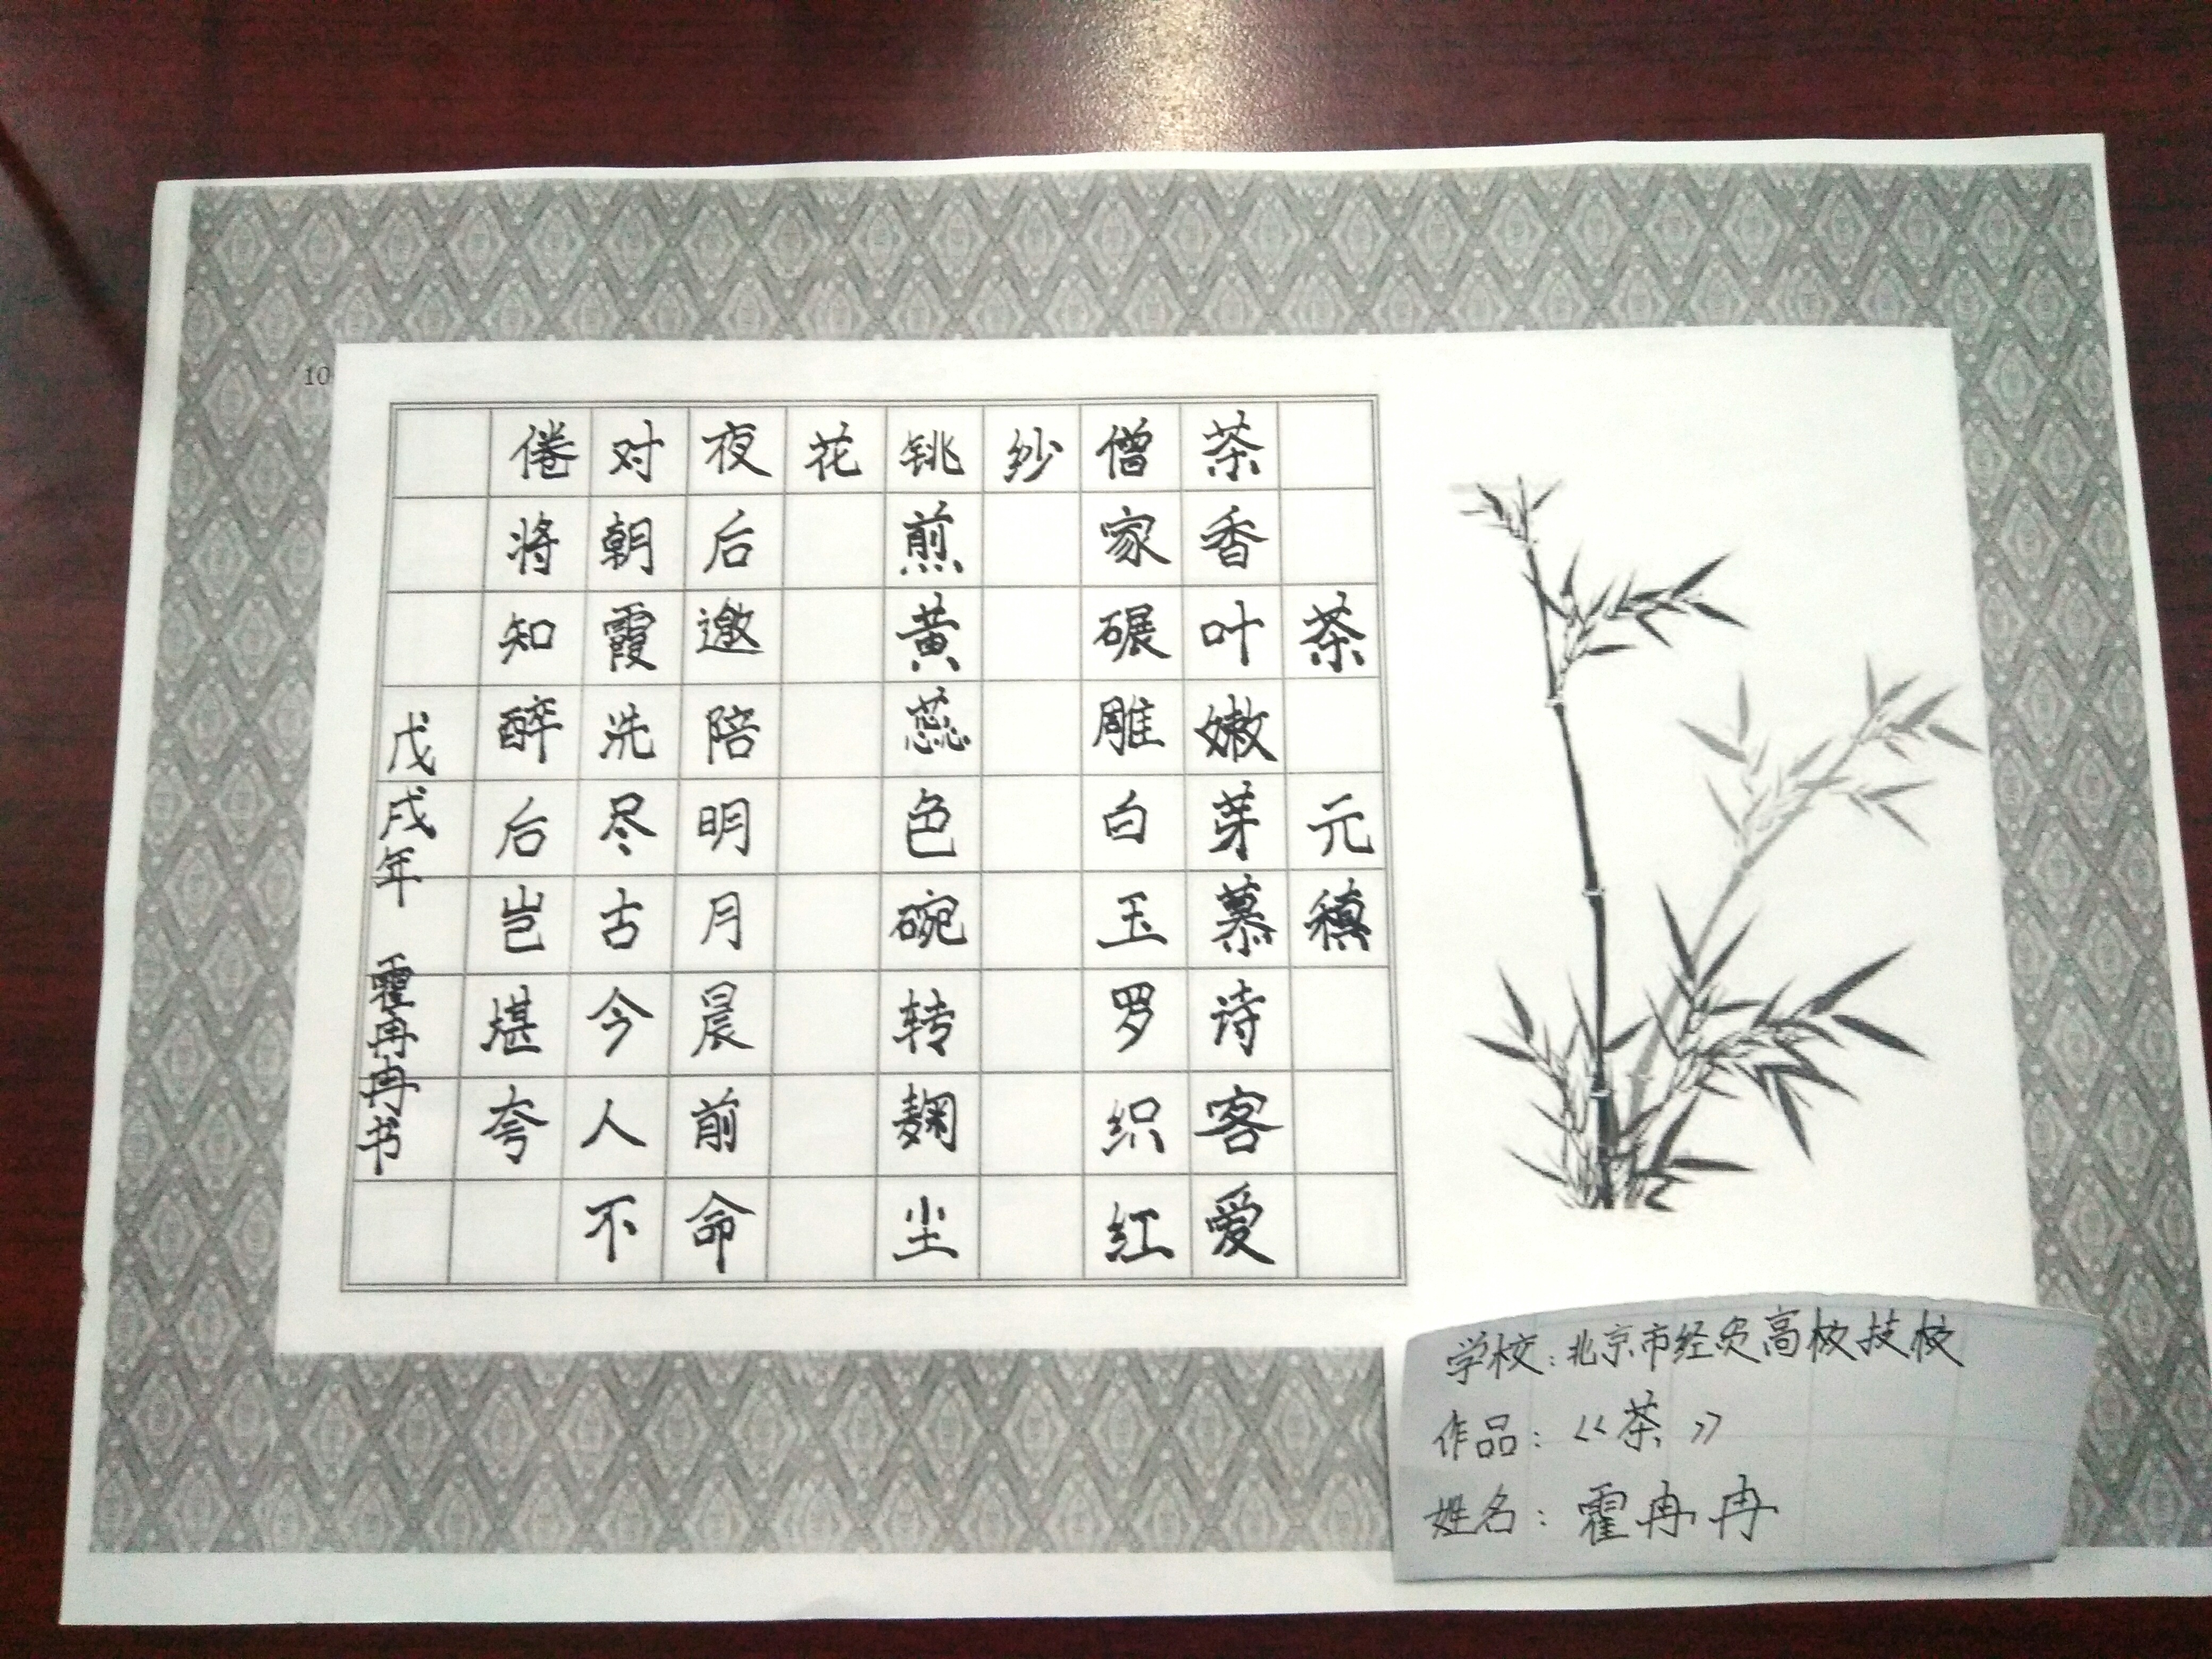 10
茶 元稹
茶香叶嫩芽慕诗客爱
僧家碾雕白玉罗织红
纱
铫煎黄蕊色碗转麹尘
花
夜后邀陪明月晨前命
对朝霞洗尽古今人不
倦将知醉后岂堪夸
戊戌年 霍冉冉书
学校：北京市经贸高级技校
作品：《茶》
姓名：霍冉冉